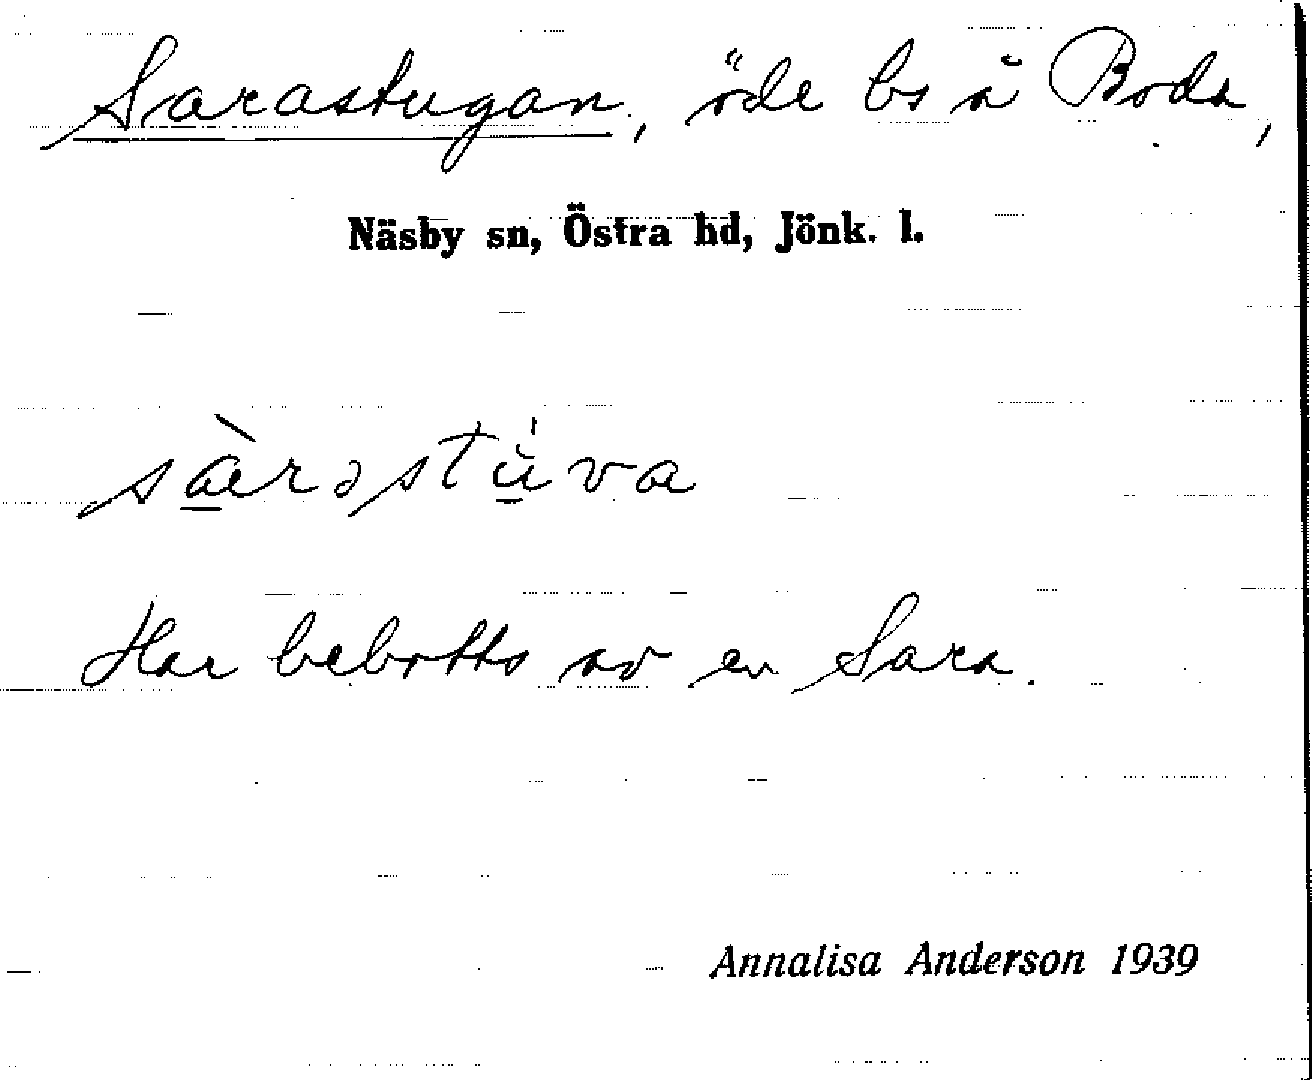 Sarastugan, öde bs å Boda,
Näsby sn, Östra hd, Jönk. l.
sàrəstu̇̀va
Har bebotts av en Sara.
Annalisa Anderson 1939